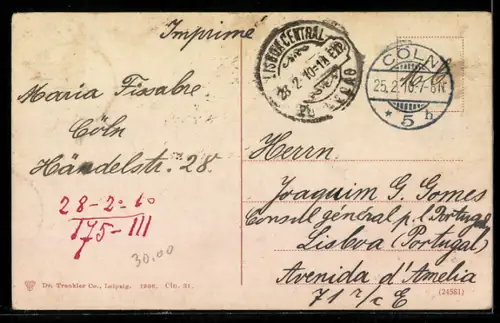 Imprimé
LISBOA CENTRAL
28-2-10-1
CÖLN
25.2.10.7-8N
* 5 b
Maria Fissabre
Cöln
Händelstr. 28.
28-2-10
175-III
30.00
Herrn
Joaquim G. Gomes
Consul général p. l. Portugal
Lisboa (Portugal)
Avenida d'Amelia
71 r/c E
Dr. Trenkler Co., Leipzig. 1906. Cln. 31.
(24581)